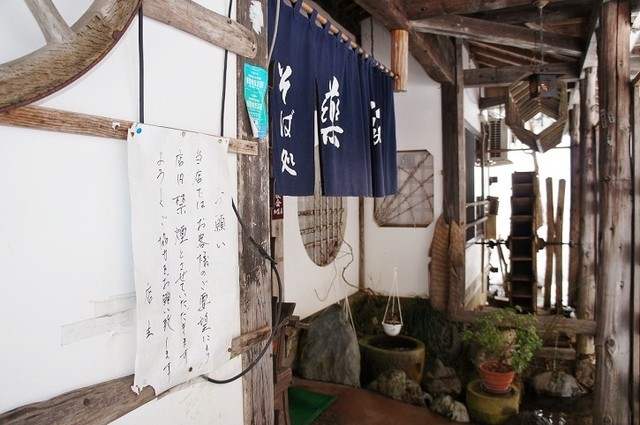 お願い
当店ではお客様のご要望により
店内禁煙とさせていただきます
よろしくご協力をお願い致します
店主
そば処